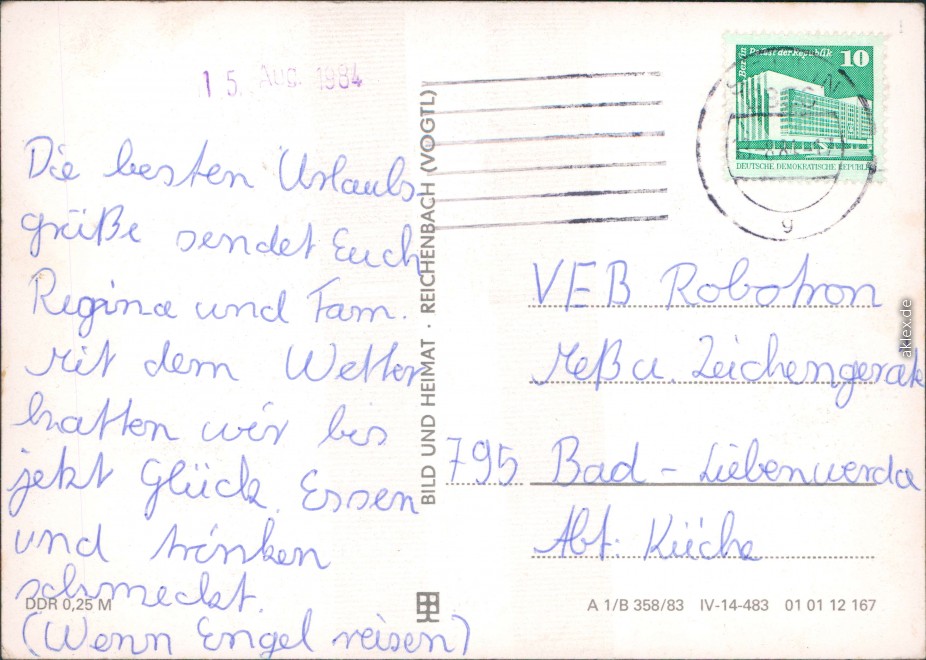 15. Aug. 1984
Die besten Urlaubs-
grüße sendet Euch
Regina und Fam.
Mit dem Wetter
hatten wir bis
jetzt Glück. Essen
und trinken
schmeckt.
(Wenn Engel reisen)
DDR 0,25 M
BILD UND HEIMAT · REICHENBACH (VOGTL)
Berlin Palast der Republik 10
DEUTSCHE DEMOKRATISCHE REPUBLIK
BERLIN
g
VEB Robotron
Meß u. Zeichengeräte
795 Bad - Liebenwerda
Abt. Küche
A 1/B 358/83 IV-14-483 01 01 12 167
aklex.de